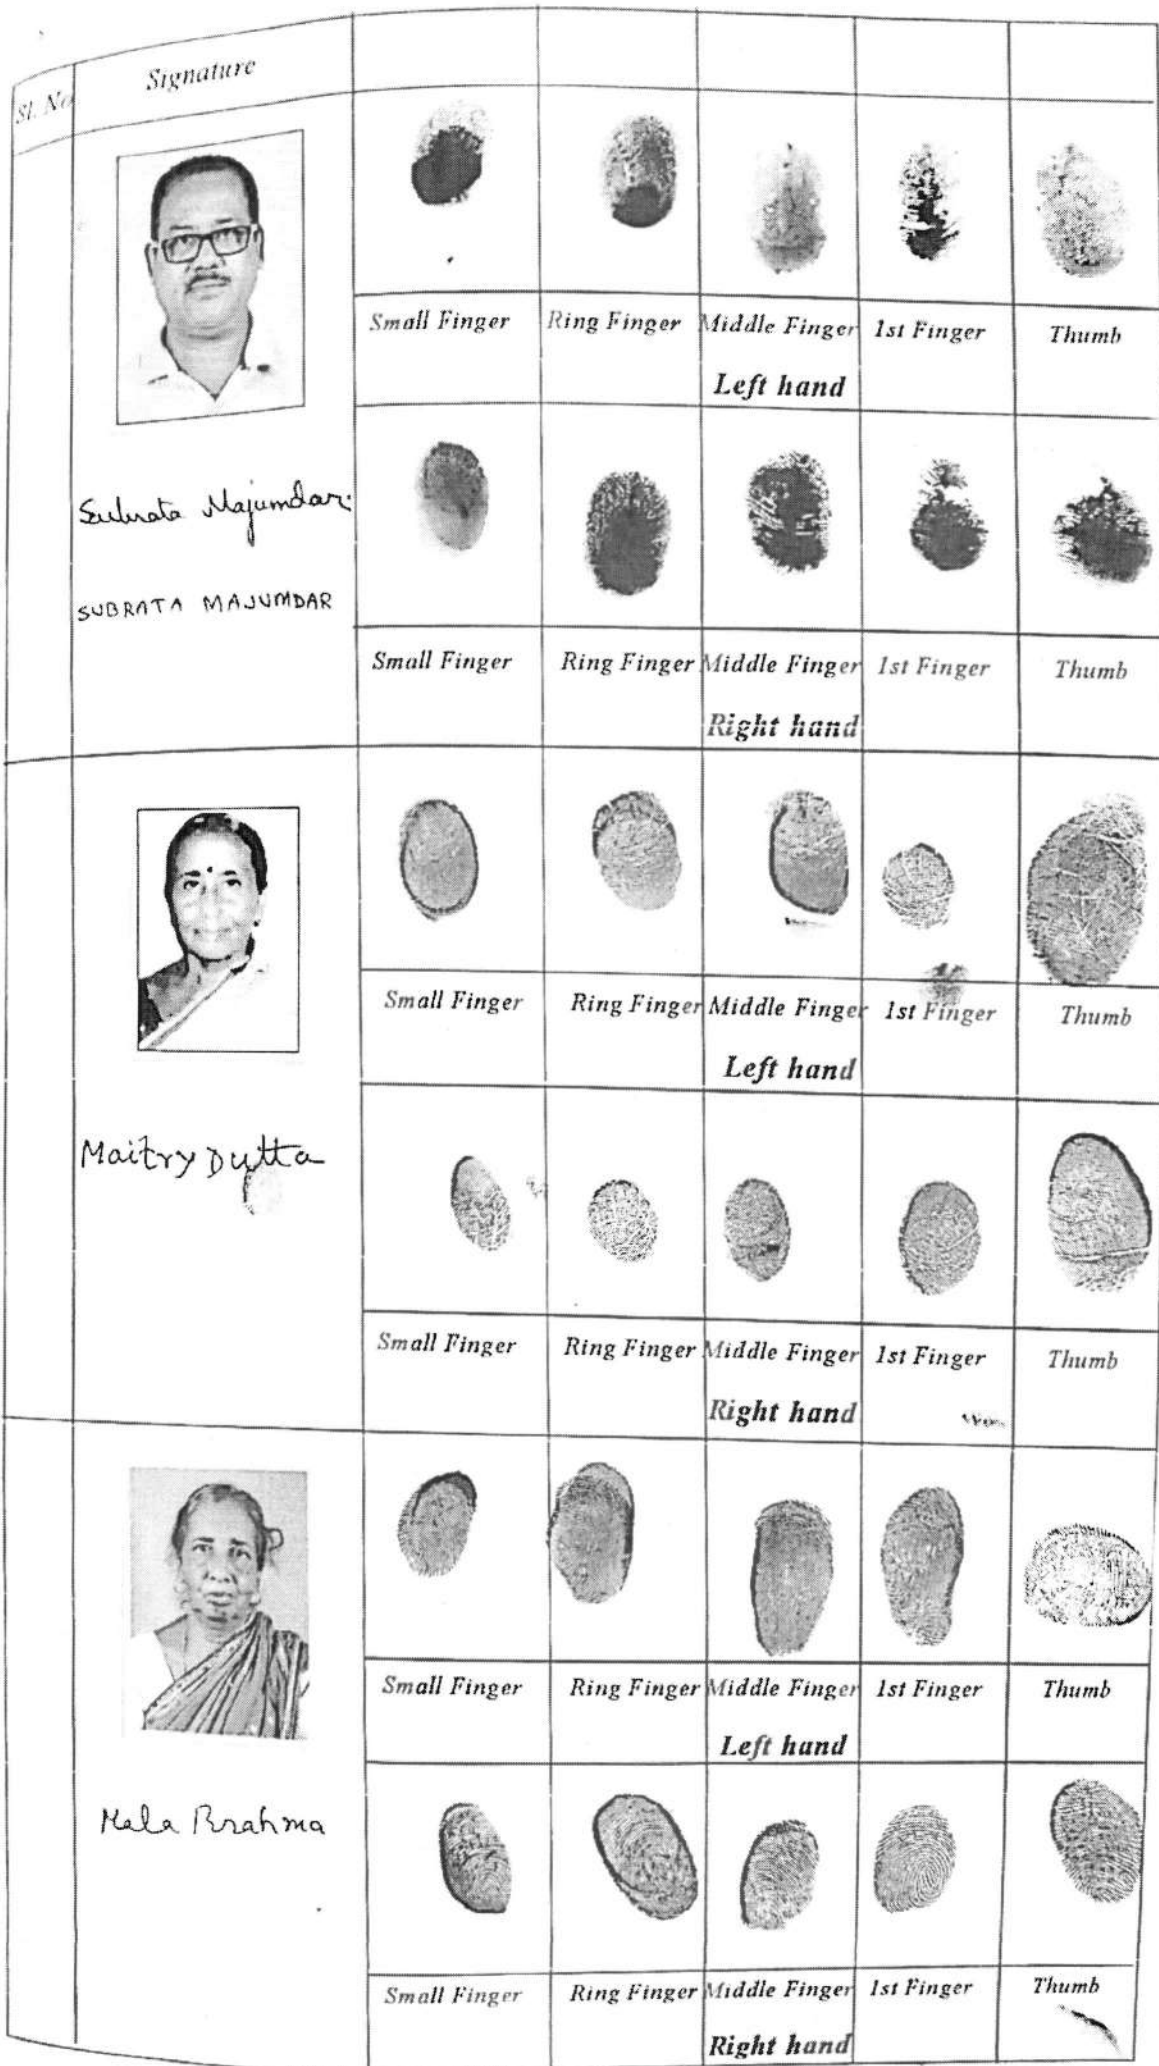 Sl. No Signature
Small Finger Ring Finger Middle Finger 1st Finger Thumb
Left hand
Subrata Majumdar
SUBRATA MAJUMDAR
Small Finger Ring Finger Middle Finger 1st Finger Thumb
Right hand
Small Finger Ring Finger Middle Finger 1st Finger Thumb
Left hand
Maitry Dutta
Small Finger Ring Finger Middle Finger 1st Finger Thumb
Right hand
Small Finger Ring Finger Middle Finger 1st Finger Thumb
Left hand
Mala Brahma
Small Finger Ring Finger Middle Finger 1st Finger Thumb
Right hand